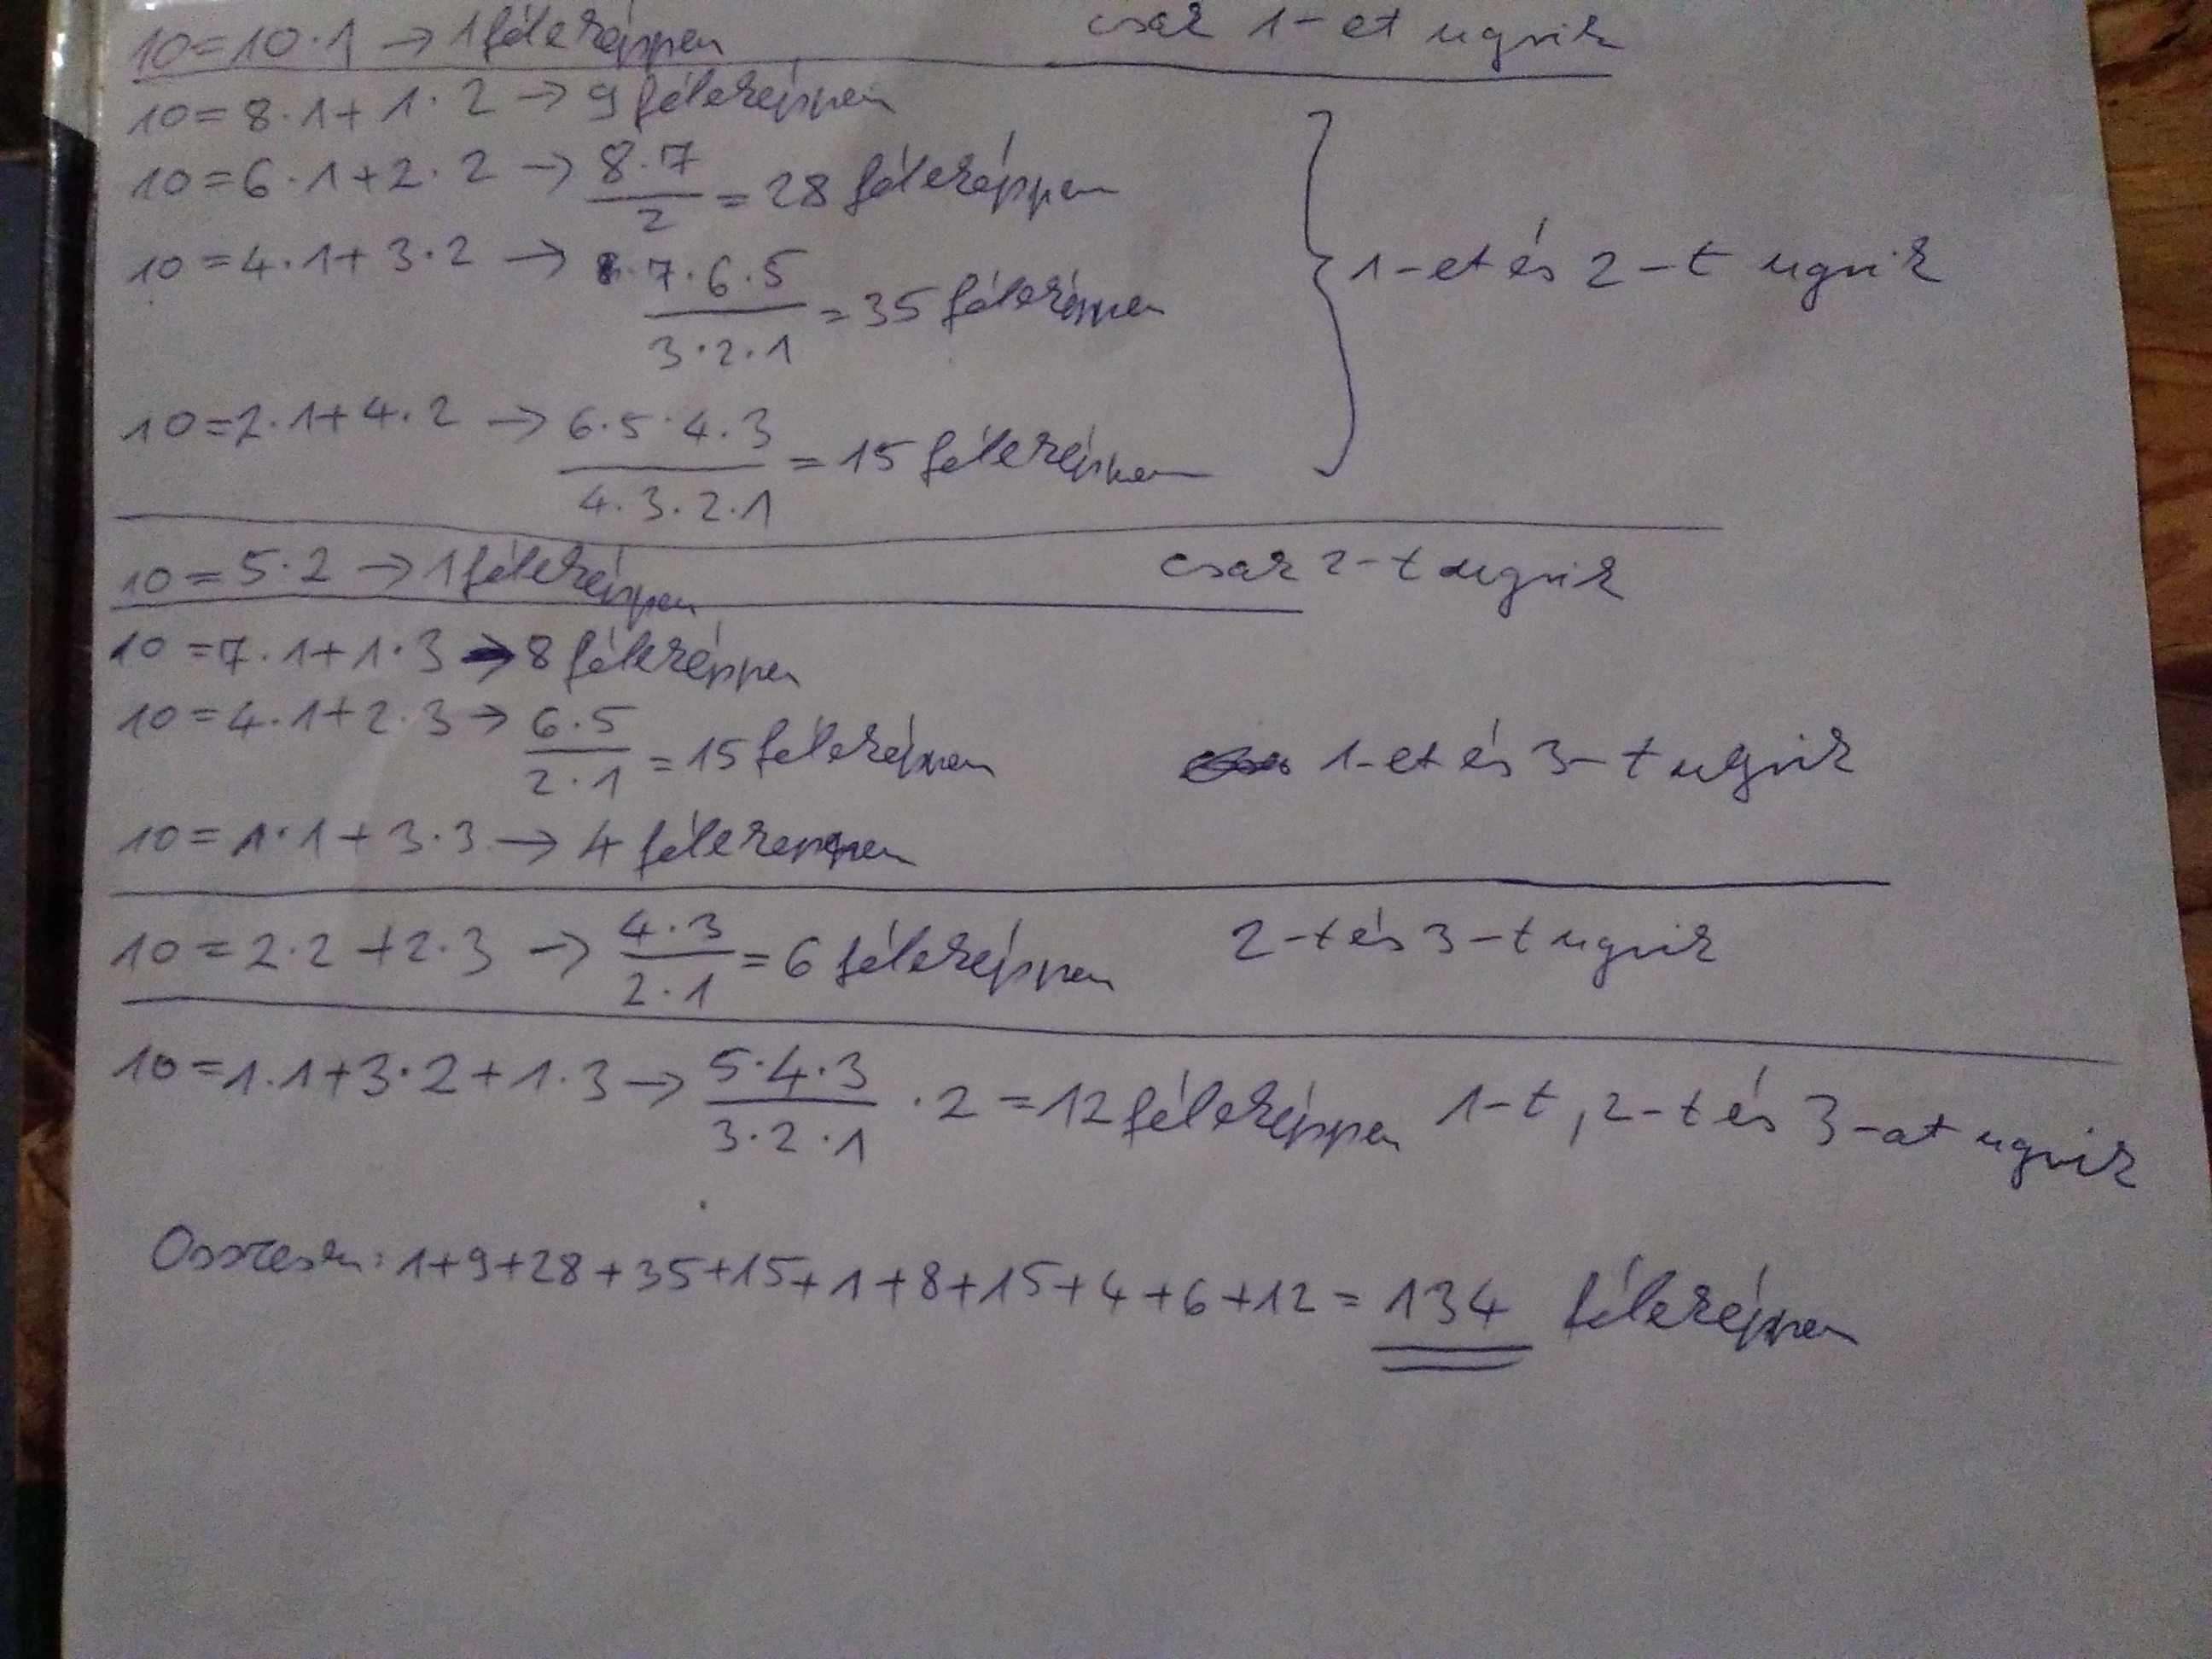 10=10·1 → 1féleképpen csak 1-et ugrik
10=8·1+1·2 → 9 féleképpen
10=6·1+2·2 → 8·7/2 = 28 féleképpen
10=4·1+3·2 → 7·6·5/3·2·1 = 35 féleképpen
1-et és 2-t ugrik
10=2·1+4·2 → 6·5·4·3/4·3·2·1 = 15 féleképpen
10=5·2 → 1féleképpen csak 2-t ugrik
10=7·1+1·3 → 8 féleképpen
10=4·1+2·3 → 6·5/2·1 = 15 féleképpen 1-et és 3-t ugrik
10=1·1+3·3 → 4 féleképpen
10=2·2+2·3 → 4·3/2·1 = 6 féleképpen 2-t és 3-t ugrik
10=1·1+3·2+1·3 → 5·4·3/3·2·1 ·2 = 12 féleképpen 1-t, 2-t és 3-at ugrik
Összesen: 1+9+28+35+15+1+8+15+4+6+12 = 134 féleképpen